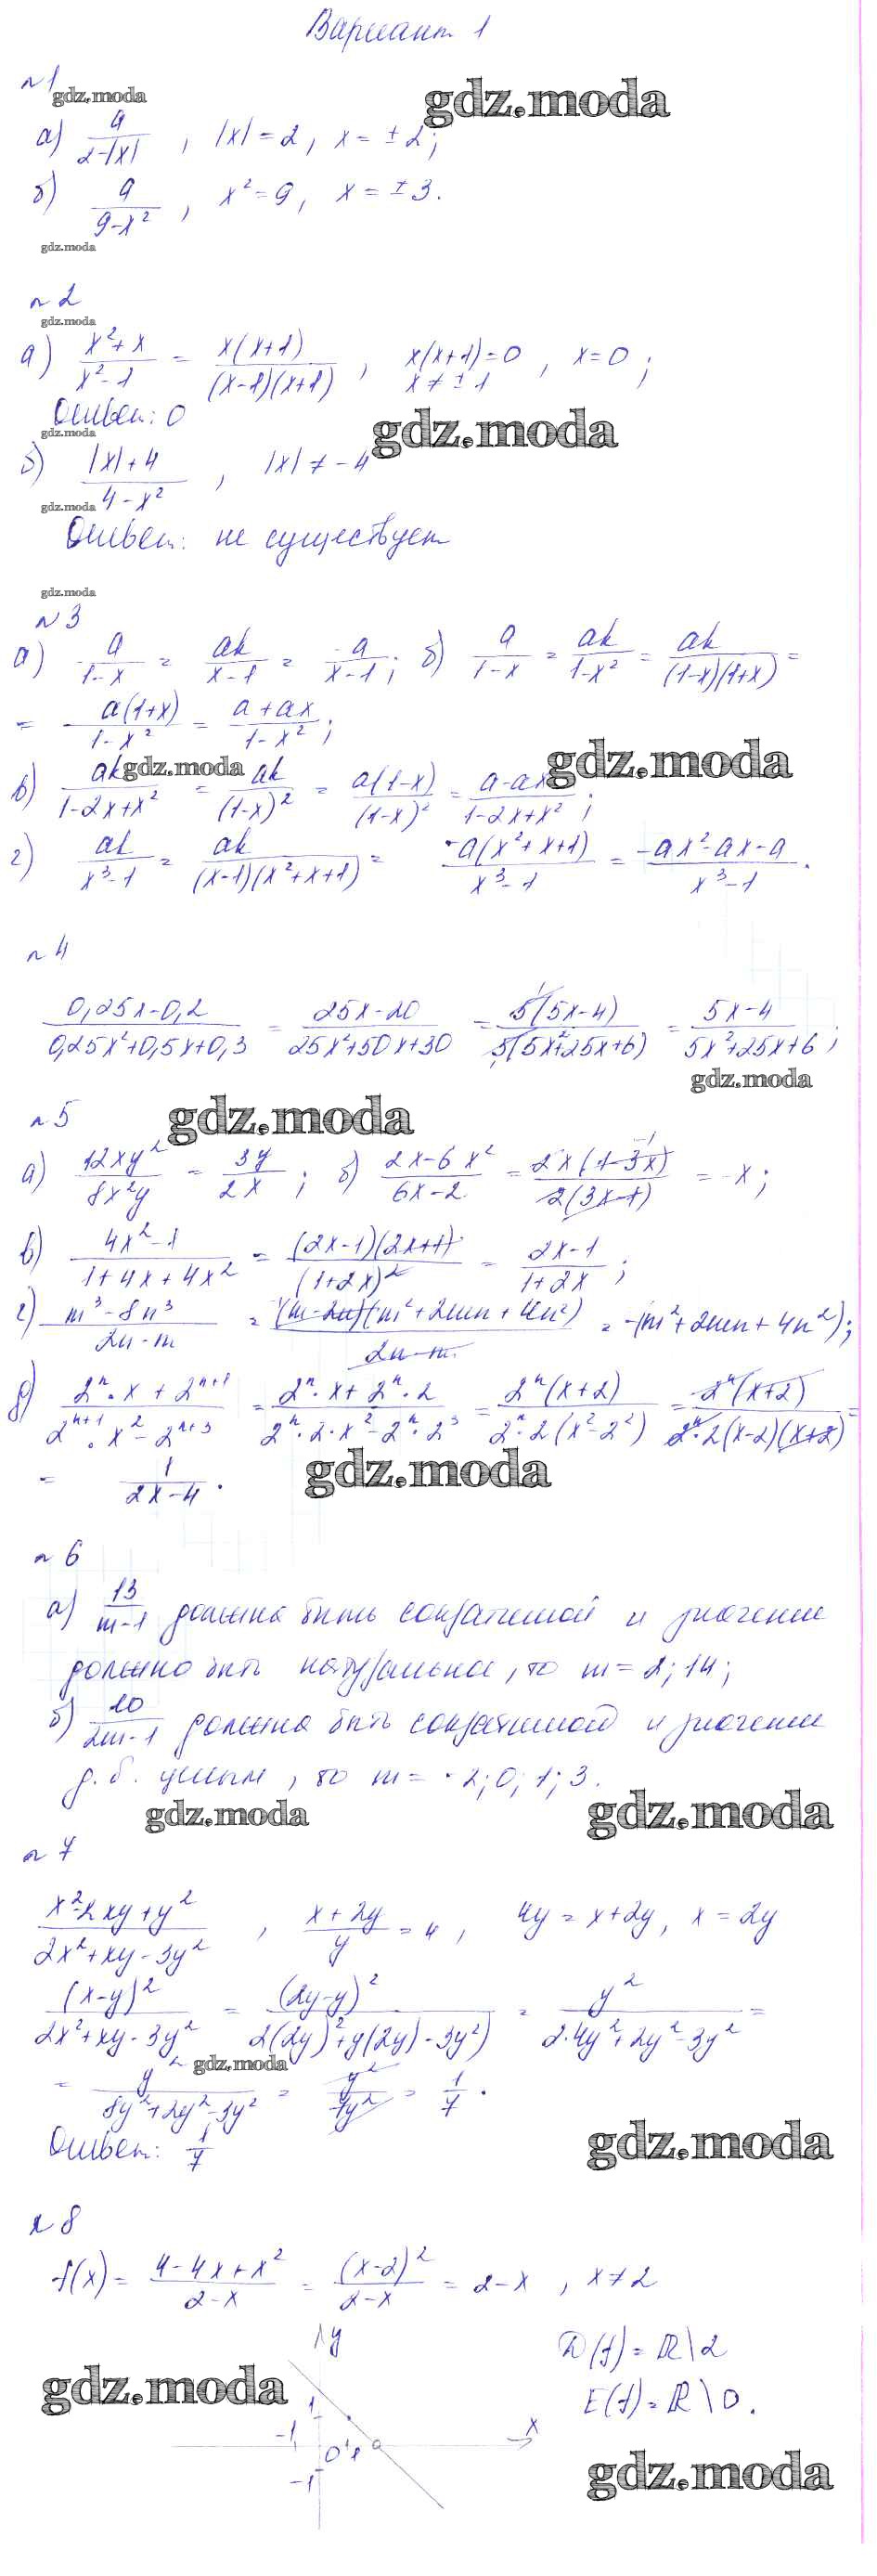 Вариант 1
№1
gdz.moda
gdz.moda
а) a/(2-|x|), |x| = 2, x = ±2;
б) a/(9-x²), x² = 9, x = ±3.
gdz.moda
№2
gdz.moda
а) (x²+x)/(x²-1) = x(x+1)/((x-1)(x+1)), x(x+1)=0, x≠±1, x=0;
Ответ: 0
gdz.moda
gdz.moda
б) (|x|+4)/(4-x²), |x| ≠ -4
gdz.moda
Ответ: не существует
gdz.moda
№3
а) a/(1-x) = ak/(x-1) = -a/(x-1); б) a/(1-x) = ak/(1-x²) = ak/((1-x)(1+x)) =
= a(1+x)/(1-x²) = (a+ax)/(1-x²);
gdz.moda
gdz.moda
в) ak/(1-2x+x²) = ak/(1-x)² = a(1-x)/(1-x)² = (a-ax)/(1-2x+x²);
г) ak/(x³-1) = ak/((x-1)(x²+x+1)) = -a(x²+x+1)/(x³-1) = (-ax²-ax-a)/(x³-1).
№4
(0,25x-0,2)/(0,25x²+0,5x+0,3) = (25x-20)/(25x²+50x+30) = 5(5x-4)/(5(5x²+25x+6)) = (5x-4)/(5x²+25x+6);
gdz.moda
№5
gdz.moda
а) 12xy²/8x²y = 3y/2x; б) (2x-6x²)/(6x-2) = 2x(1-3x)/(2(3x-1)) = -x;
в) (4x²-1)/(1+4x+4x²) = (2x-1)(2x+1)/(1+2x)² = (2x-1)/(1+2x);
г) (m³-8n³)/(2n-m) = (m-2n)(m²+2mn+4n²)/(2n-m) = -(m²+2mn+4n²);
д) (2ⁿ·x+2ⁿ⁺¹)/(2ⁿ⁺¹·x²-2ⁿ⁺³) = (2ⁿ·x+2ⁿ·2)/(2ⁿ·2·x²-2ⁿ·2³) = 2ⁿ(x+2)/(2ⁿ·2(x²-2²)) = 2ⁿ(x+2)/(2ⁿ·2(x-2)(x+2)) =
= 1/(2x-4).
gdz.moda
№6
а) 13/(m-1) должна быть сократимой и значение
должно быть натуральное, то m = 2; 14;
б) 20/(2m-1) должна быть сократимой и значение
д.б. целым, то m = -2; 0; 1; 3.
gdz.moda
gdz.moda
№7
(x²-2xy+y²)/(2x²+xy-3y²), (x+2y)/y = 4, 4y = x+2y, x = 2y
(x-y)²/(2x²+xy-3y²) = (2y-y)²/(2(2y)²+y(2y)-3y²) = y²/(2·4y²+2y²-3y²) =
gdz.moda
= y²/(8y²+2y²-3y²) = y²/7y² = 1/7.
Ответ: 1/7
gdz.moda
№8
f(x) = (4-4x+x²)/(2-x) = (x-2)²/(2-x) = 2-x, x≠2
y
D(f) = R\2
gdz.moda
E(f) = R\0.
1
x
-1
0
1
-1
gdz.moda